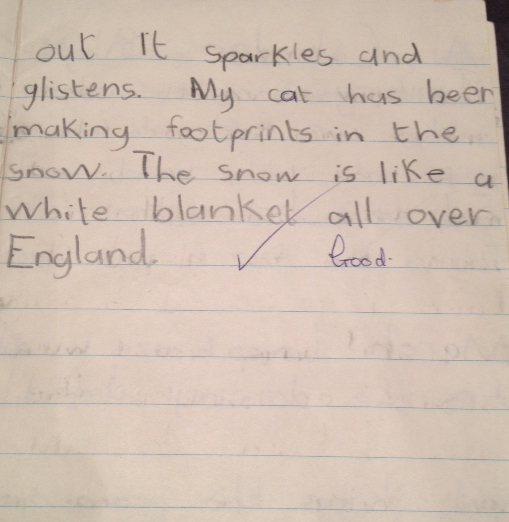 out It sparkles and
glistens. My cat has been
making footprints in the
snow. The snow is like a
white blanket all over
England.
Good.